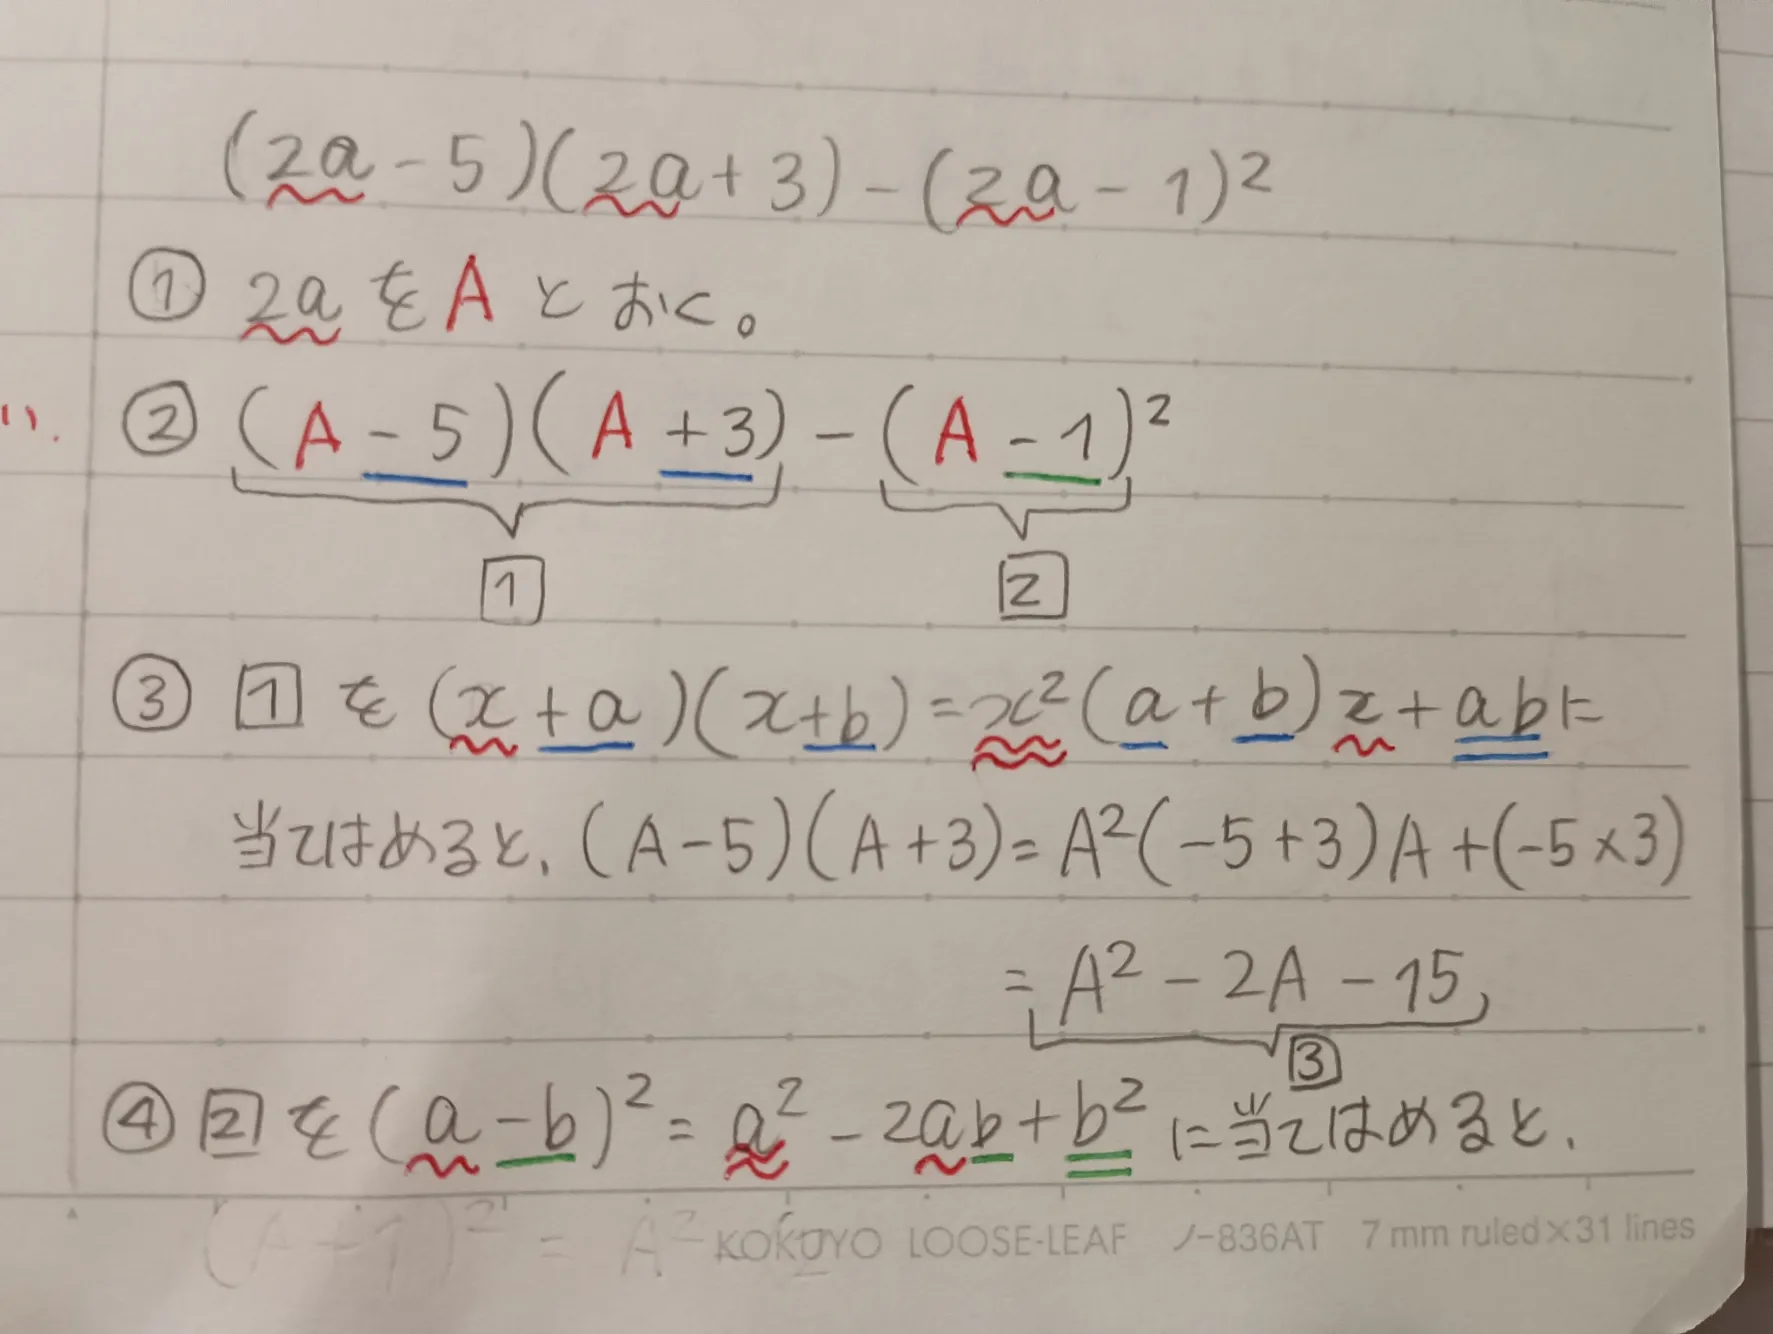 (2a-5)(2a+3)-(2a-1)²
① 2aをAとおく。
② (A-5)(A+3)-(A-1)²
い.
1 2
③ 1を(x+a)(x+b)=x²(a+b)x+abに
当てはめると、(A-5)(A+3)=A²(-5+3)A+(-5×3)
=A²-2A-15,
3
④ 2を(a-b)²=a²-2ab+b²に当てはめると、
KOKUYO LOOSE-LEAF ノ-836AT 7 mm ruled×31 lines